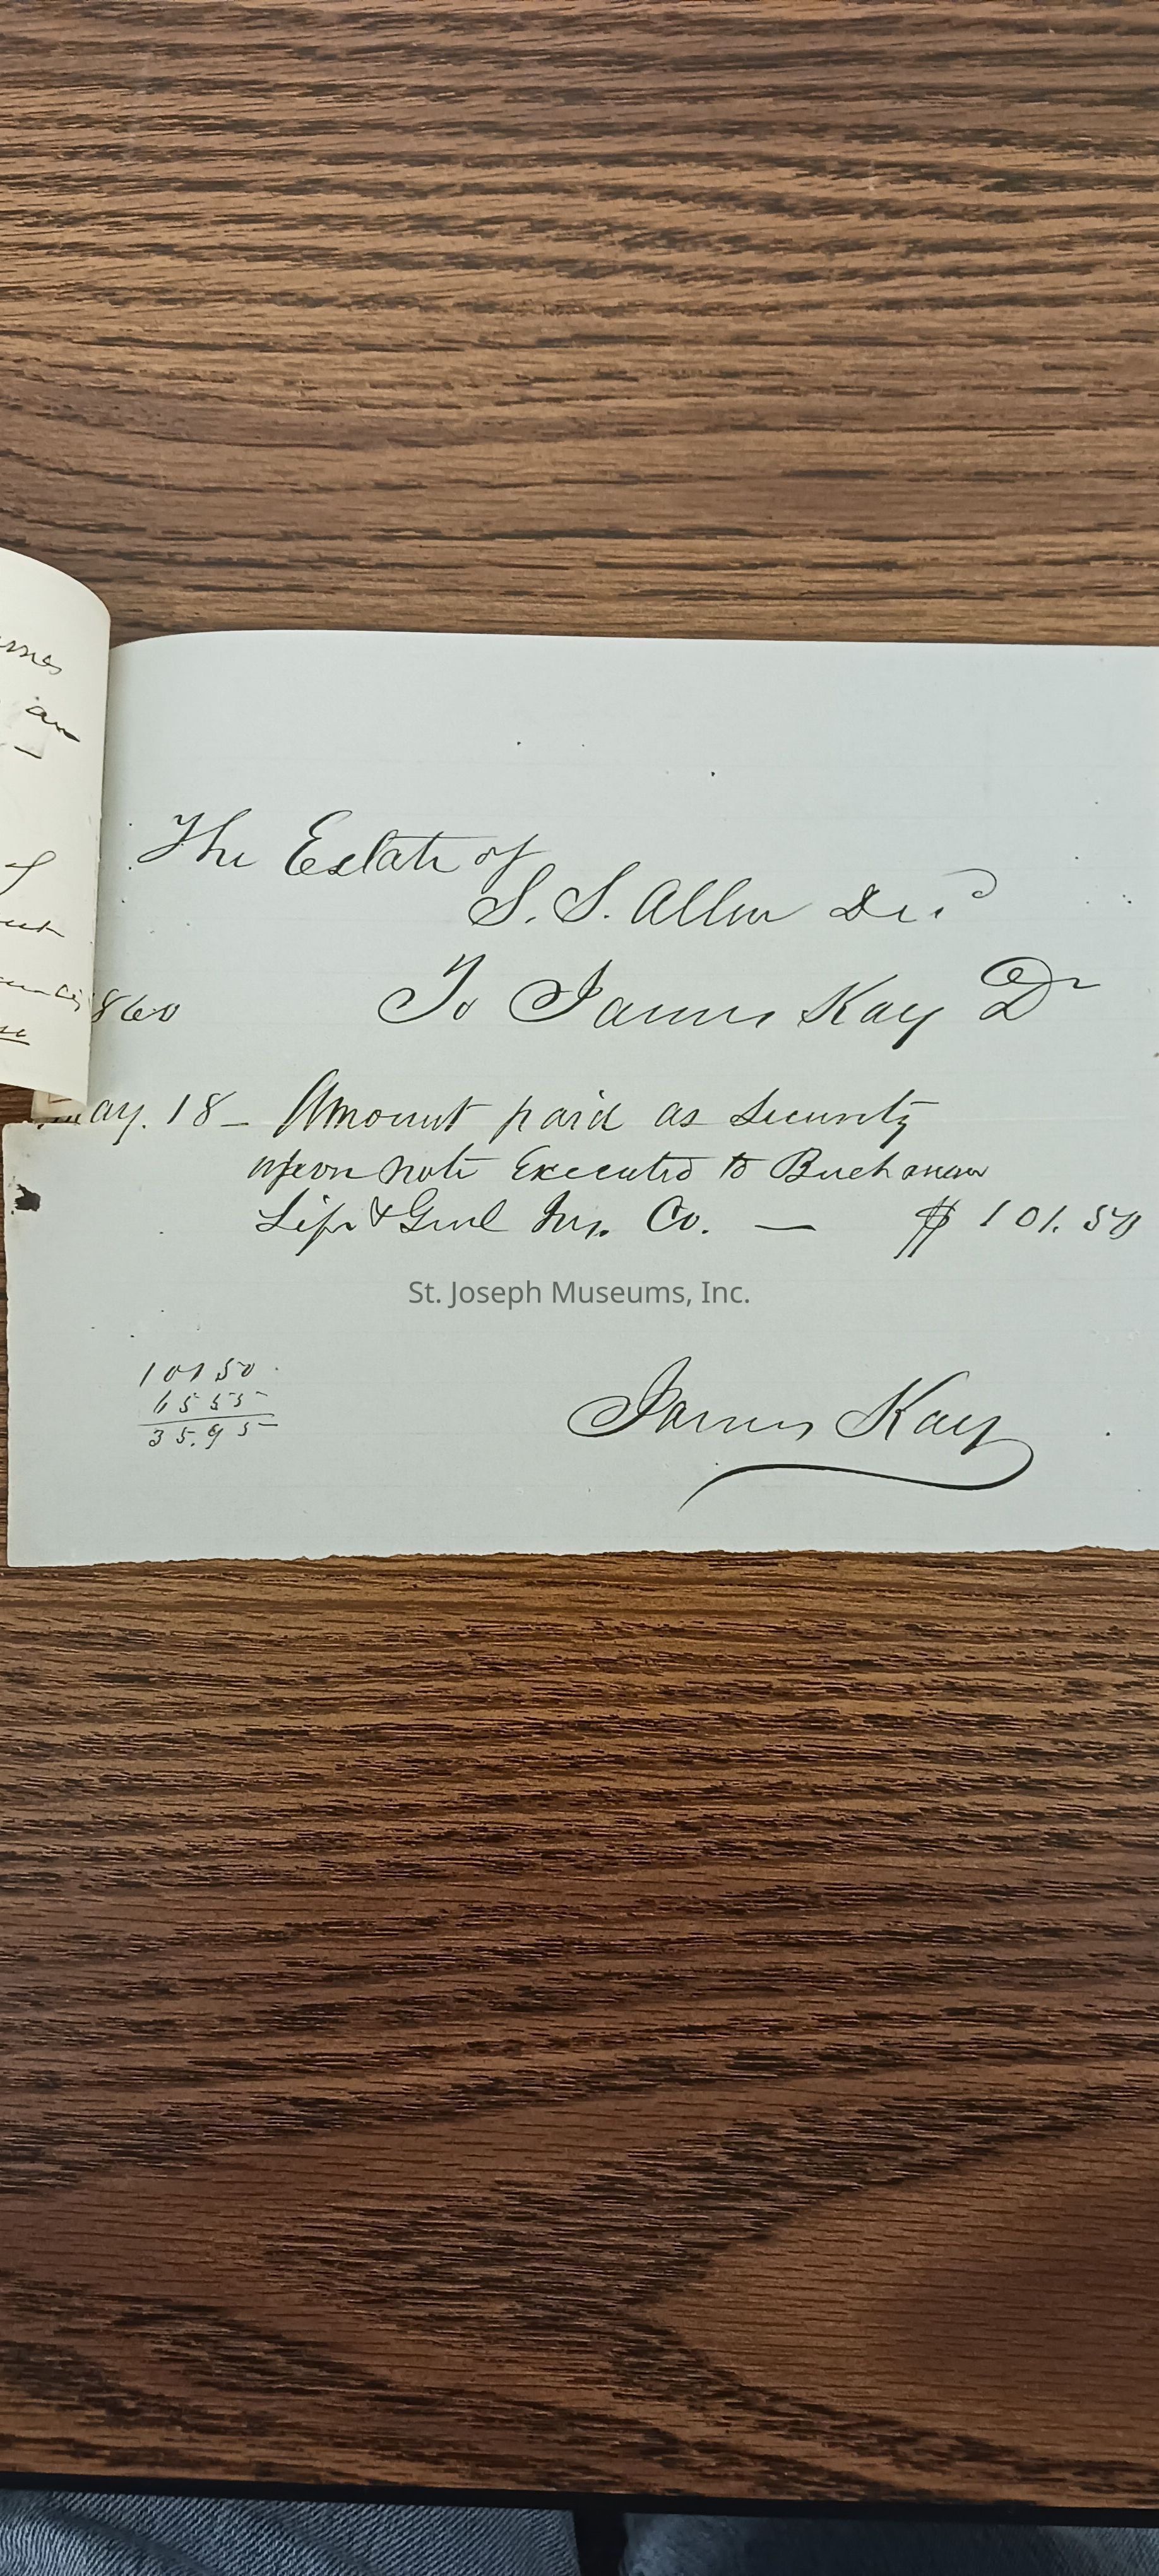 The Estate of
S. S. Allen Decd
To James Kay Dr
1860
May. 18 - Amount paid as security
upon note Executed to Buchanan
Life & Genl Ins. Co. — $ 101.50
St. Joseph Museums, Inc.
101 50
65 55
35.95
James Kay